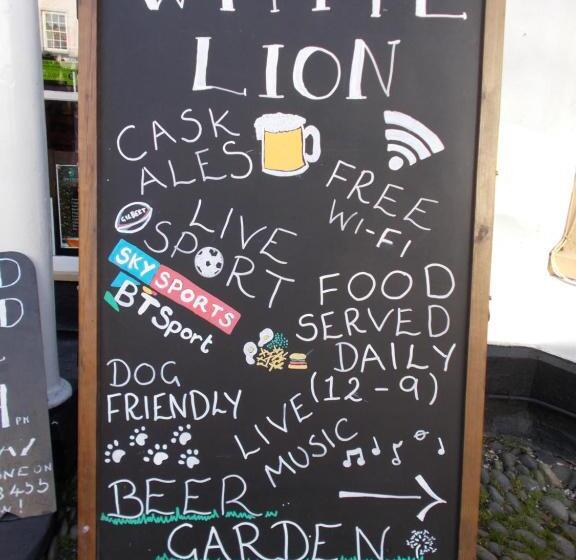 WHITE
LION
CASK
ALES
FREE
WI-FI
GILBERT
LIVE
SPORT
SKY SPORTS
BT Sport
FOOD
SERVED
DAILY
(12-9)
DOG
FRIENDLY
LIVE
MUSIC
BEER
GARDEN
D
D
PM